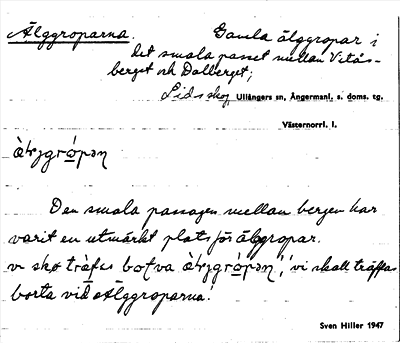 Älggroparna. Gamla älggropar i
det smala passet mellan Vitås-
berget och Dalberget;
Lidskog Ullångers sn, Ångermanl. s. doms. tg.
Västernorrl. l.
Den smala passagen mellan bergen har
varit en utmärkt plats för älggropar.
vi skall träffas
borta vid Älggroparna.
Sven Hiller 1947